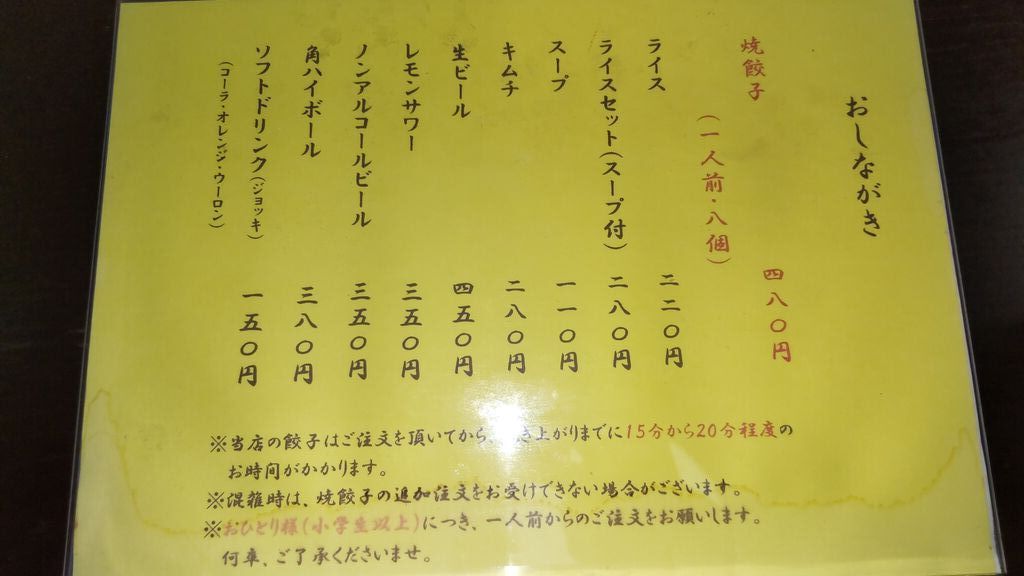 おしながき
焼餃子 四八〇円
(一人前・八個)
ライス 二二〇円
ライスセット(スープ付) 二八〇円
スープ 一一〇円
キムチ 二八〇円
生ビール 四五〇円
レモンサワー 三五〇円
ノンアルコールビール 三五〇円
角ハイボール 三八〇円
ソフトドリンク(ジョッキ) 一五〇円
(コーラ・オレンジ・ウーロン)
※当店の餃子はご注文を頂いてから、 き上がりまでに15分から20分程度の
お時間がかかります。
※混雑時は、焼餃子の追加注文をお受けできない場合がございます。
※おひとり様(小学生以上)につき、一人前からのご注文をお願いします。
何卒、ご了承くださいませ。